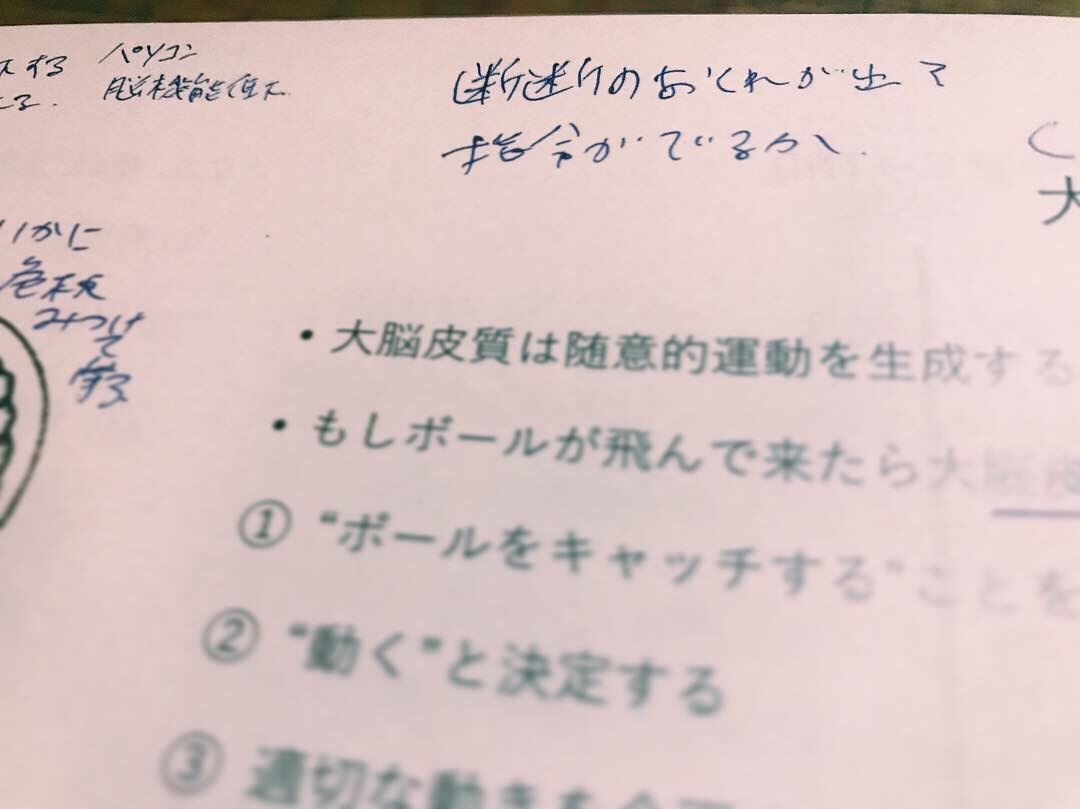 する パソコン
脳機能低下
のおくれが出て
がでるか
いかに
みつけ
て
・大脳皮質は随意的運動を生成する
・もしボールが飛んで来たら大脳皮
① “ボールをキャッチする”ことを
② “動く”と決定する
③ 適切な動きを
大